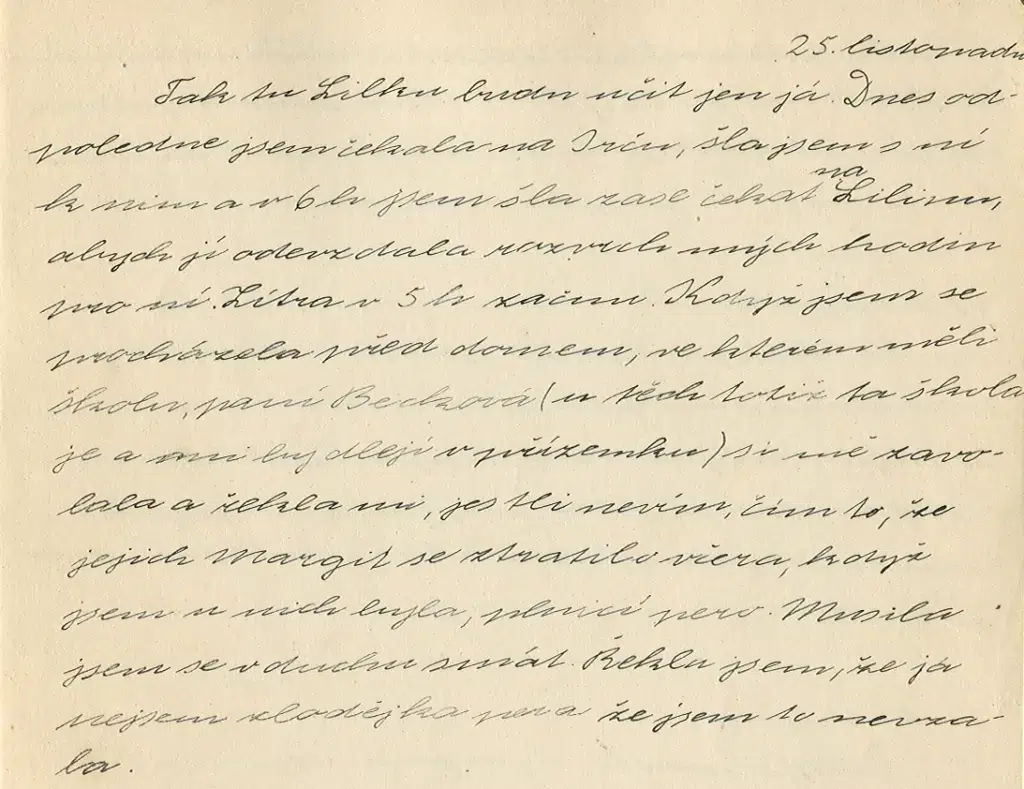 25. listopadu
Tak tu Lilku budu učit jen já. Dnes od-
poledne jsem čekala na Irču, šla jsem s ní
k nim a v 6 h jsem šla zase čekat na Lilinu,
abych jí odevzdala rozvrh mých hodin
pro ní. Zítra v 5 h začnu. Když jsem se
procházela před domem, ve kterém měli
školu, paní Becková (u těch totiž ta škola
je a oni bydlejí v přízemku) si mě zavo-
lala a řekla mi, jestli nevím, čím to, že
jejich Margit se ztratilo včera, když
jsem u nich byla, plnicí pero. Musila
jsem se v duchu smát. Řekla jsem, že já
nejsem zlodějka pera že jsem to nevza-
la.